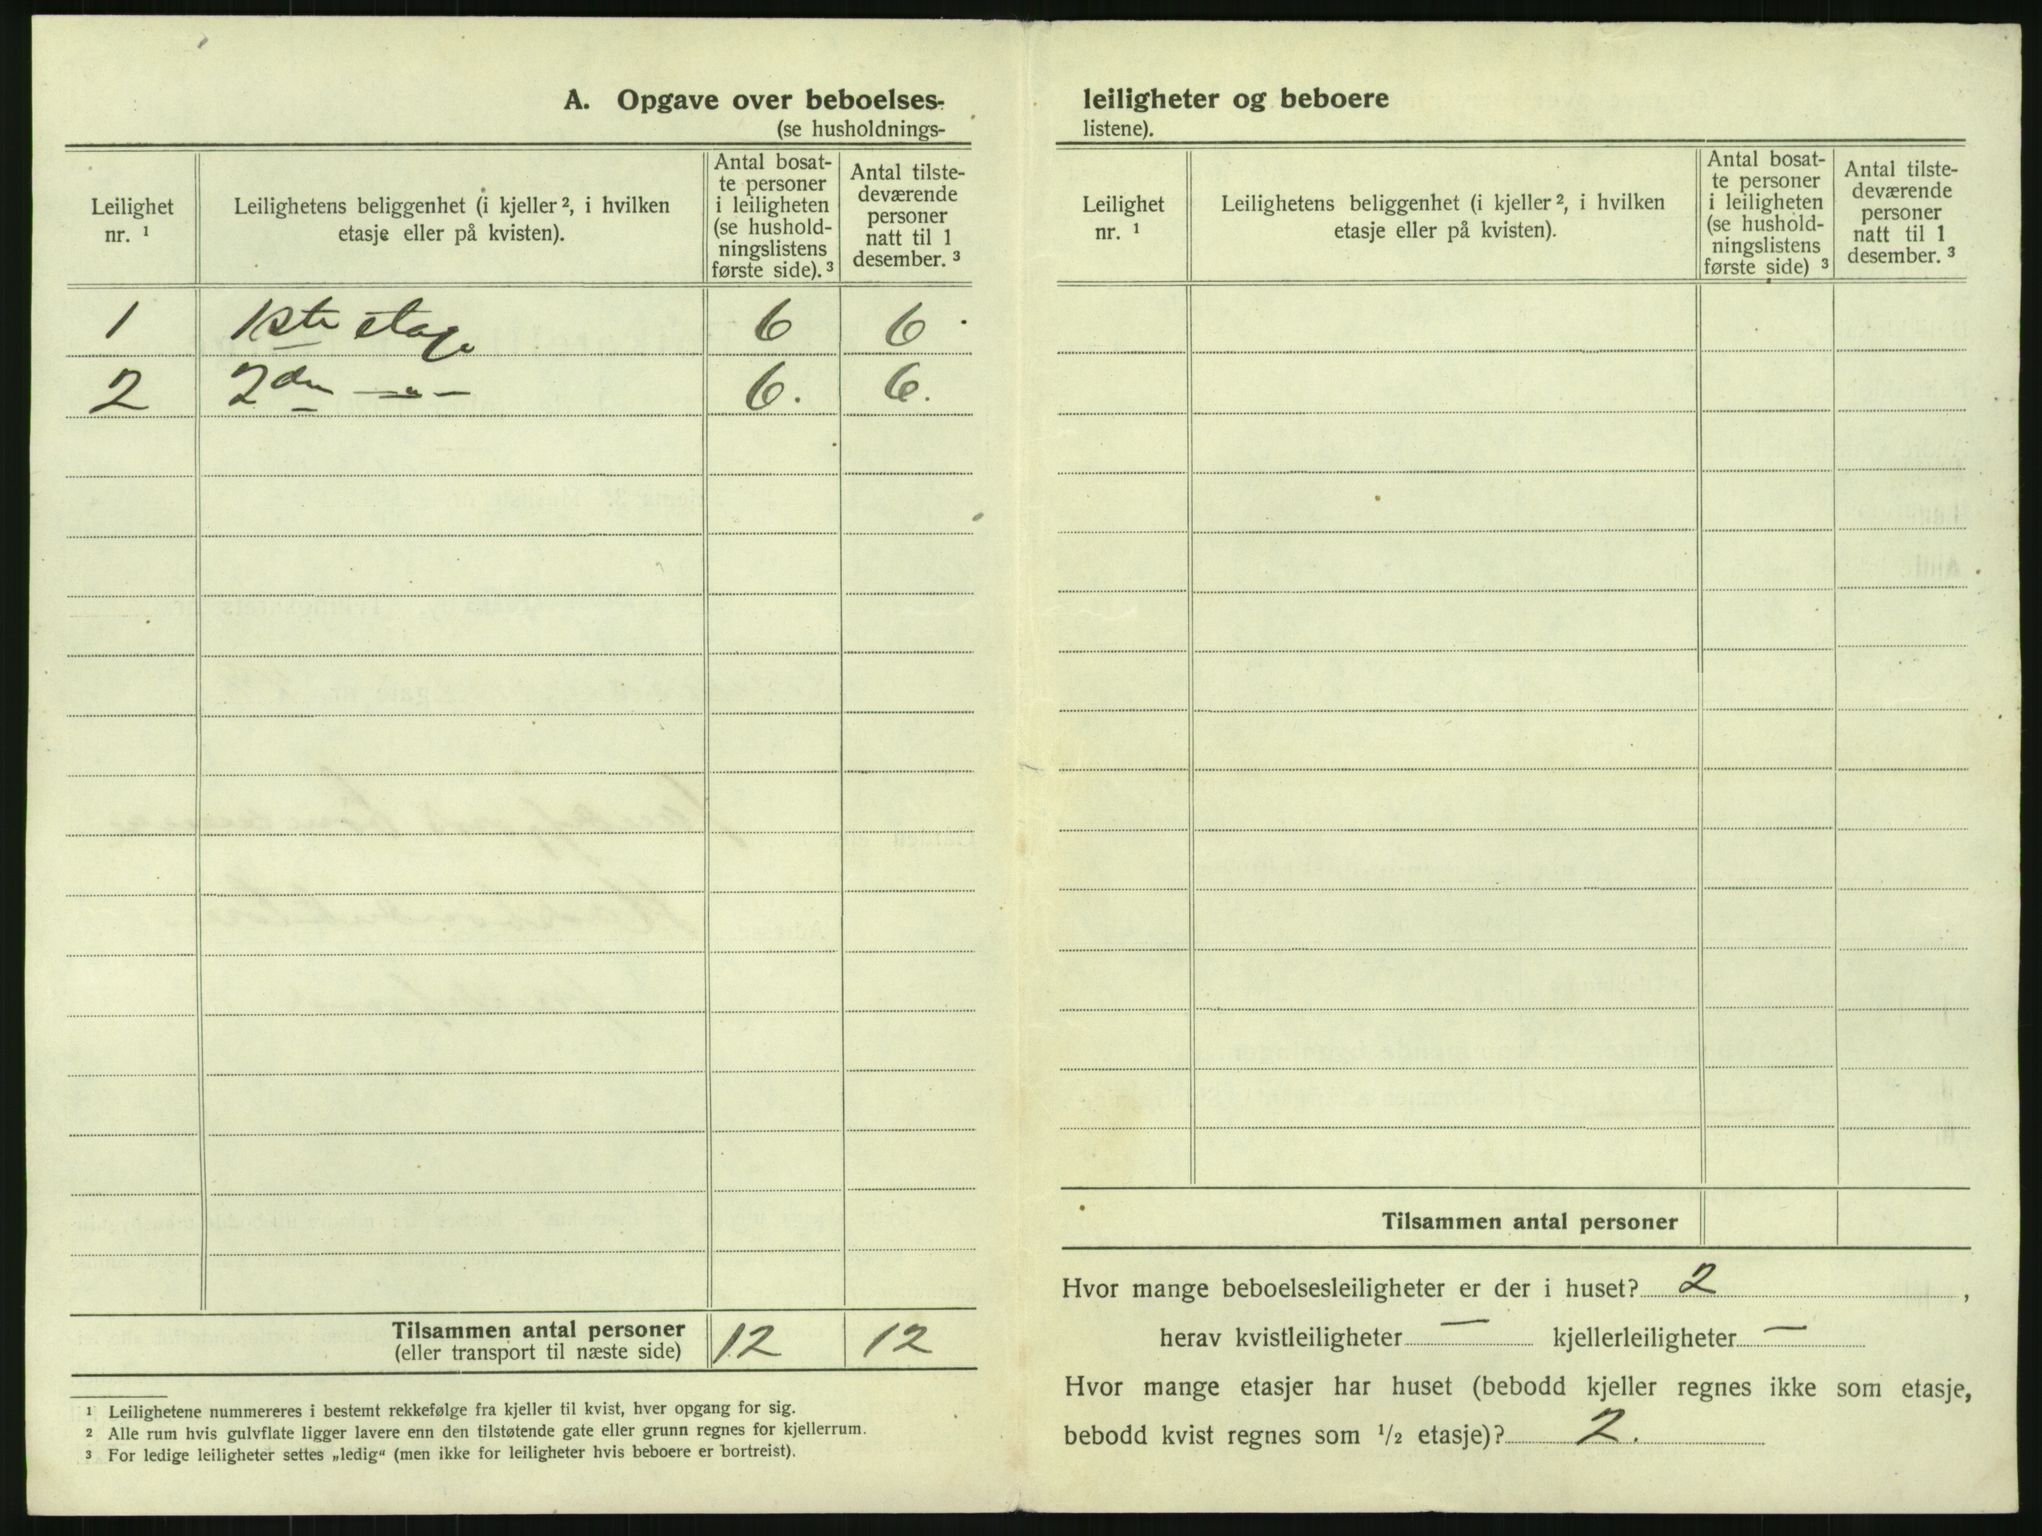 A. Opgave over beboelses-
(se husholdnings-
Leilighet nr. ¹
Leilighetens beliggenhet (i kjeller ², i hvilken etasje eller på kvisten).
Antal bosat-
te personer
i leiligheten
(se hushold-
ningslistens
første side). ³
Antal tilste-
deværende
personer
natt til 1
desember. ³
1 1ste etage 6 6
2 2den —„— 6. 6.
Tilsammen antal personer 12 12
(eller transport til næste side)
¹ Leilighetene nummereres i bestemt rekkefølge fra kjeller til kvist, hver opgang for sig.
² Alle rum hvis gulvflate ligger lavere enn den tilstøtende gate eller grunn regnes for kjellerrum.
³ For ledige leiligheter settes „ledig“ (men ikke for leiligheter hvis beboere er bortreist).
leiligheter og beboere
listene).
Leilighet nr. ¹
Leilighetens beliggenhet (i kjeller ², i hvilken etasje eller på kvisten).
Antal bosat-
te personer
i leiligheten
(se hushold-
ningslistens
første side) ³
Antal tilste-
deværende
personer
natt til 1
desember. ³
Tilsammen antal personer
Hvor mange beboelsesleiligheter er der i huset? 2 ,
herav kvistleiligheter — kjellerleiligheter —
Hvor mange etasjer har huset (bebodd kjeller regnes ikke som etasje,
bebodd kvist regnes som ½ etasje)? 2.